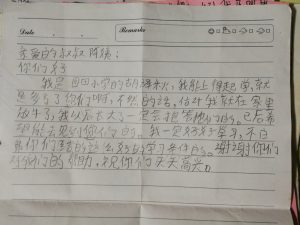 Date.
Remarks
亲爱的叔叔阿姨:
你们好
我是田田小学的
我能上得起学,就
是多亏了你们啊,不然的话,估计我就在家里
放牛了,我以后长大了一定会报答你们的。已后希
望能去见到你们的。我一定好好学习,不白
费你们给的这么好的学习条件的。谢谢你们
对我们的帮助,祝你们天天高兴。